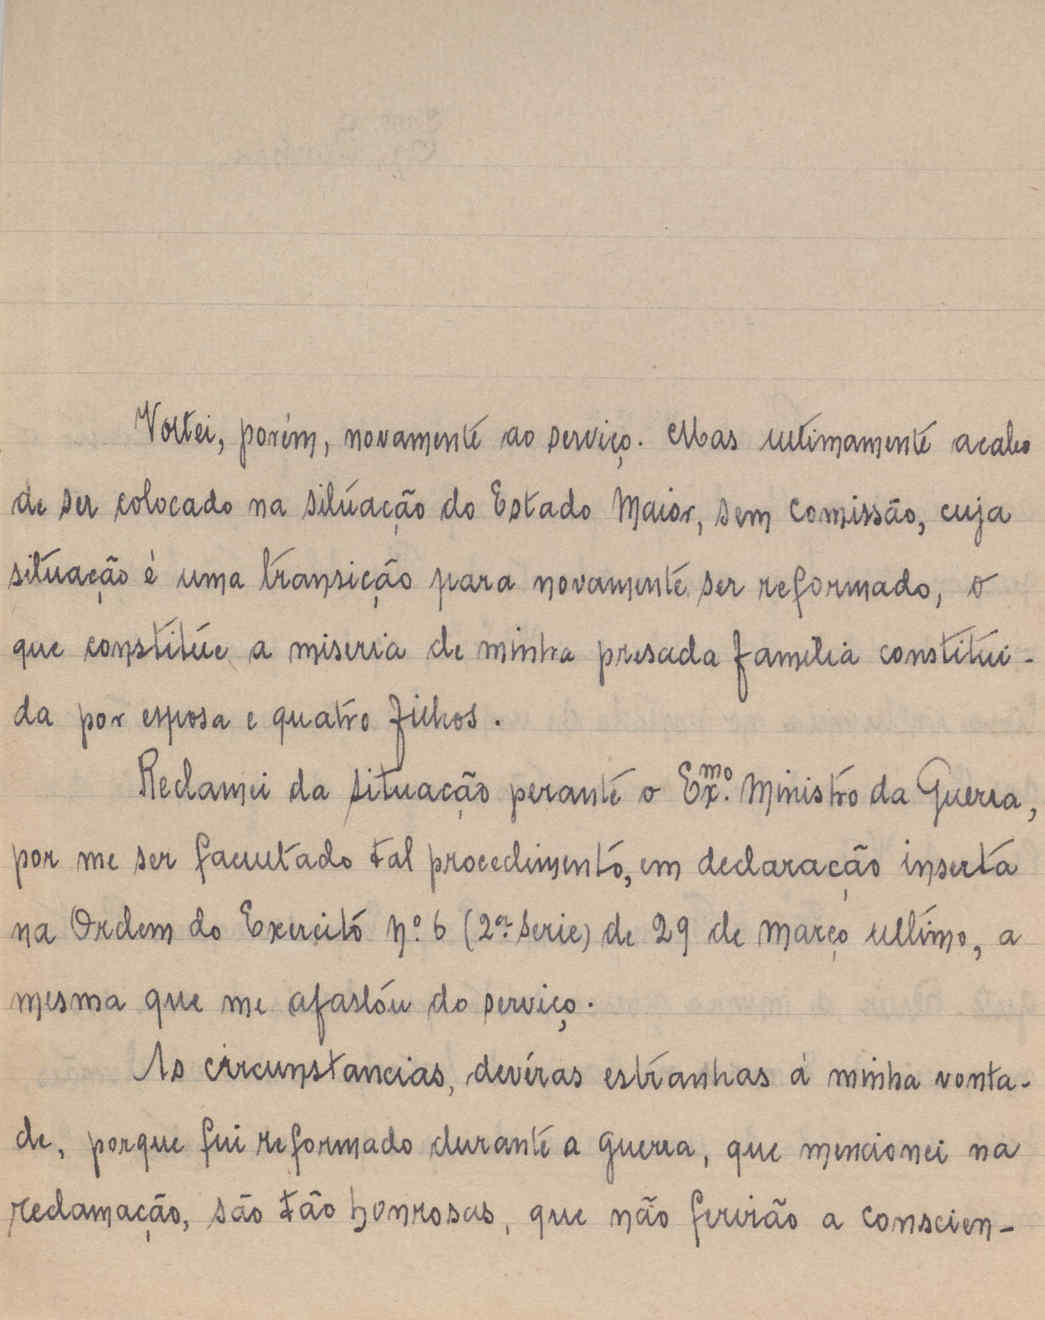 Voltei, porém, novamente ao serviço. Mas ultimamente acabo
de ser colocado na situação do Estado Maior, sem comissão, cuja
situação é uma transição para novamente ser reformado, o
que constitúe a miseria de minha presada familia constitui-
da por esposa e quatro filhos.
Reclamei da situação perante o Ex.mo Ministro da Guerra,
por me ser facultado tal procedimento, em declaração inserta
na Ordem do Exercito nº 6 (2ª Serie) de 29 de março ultimo, a
mesma que me afastou do serviço.
As circunstancias, devéras estranhas á minha vonta-
de, porque fui reformado durante a guerra, que mencionei na
reclamação, são tão honrosas, que não ferirão a conscien-